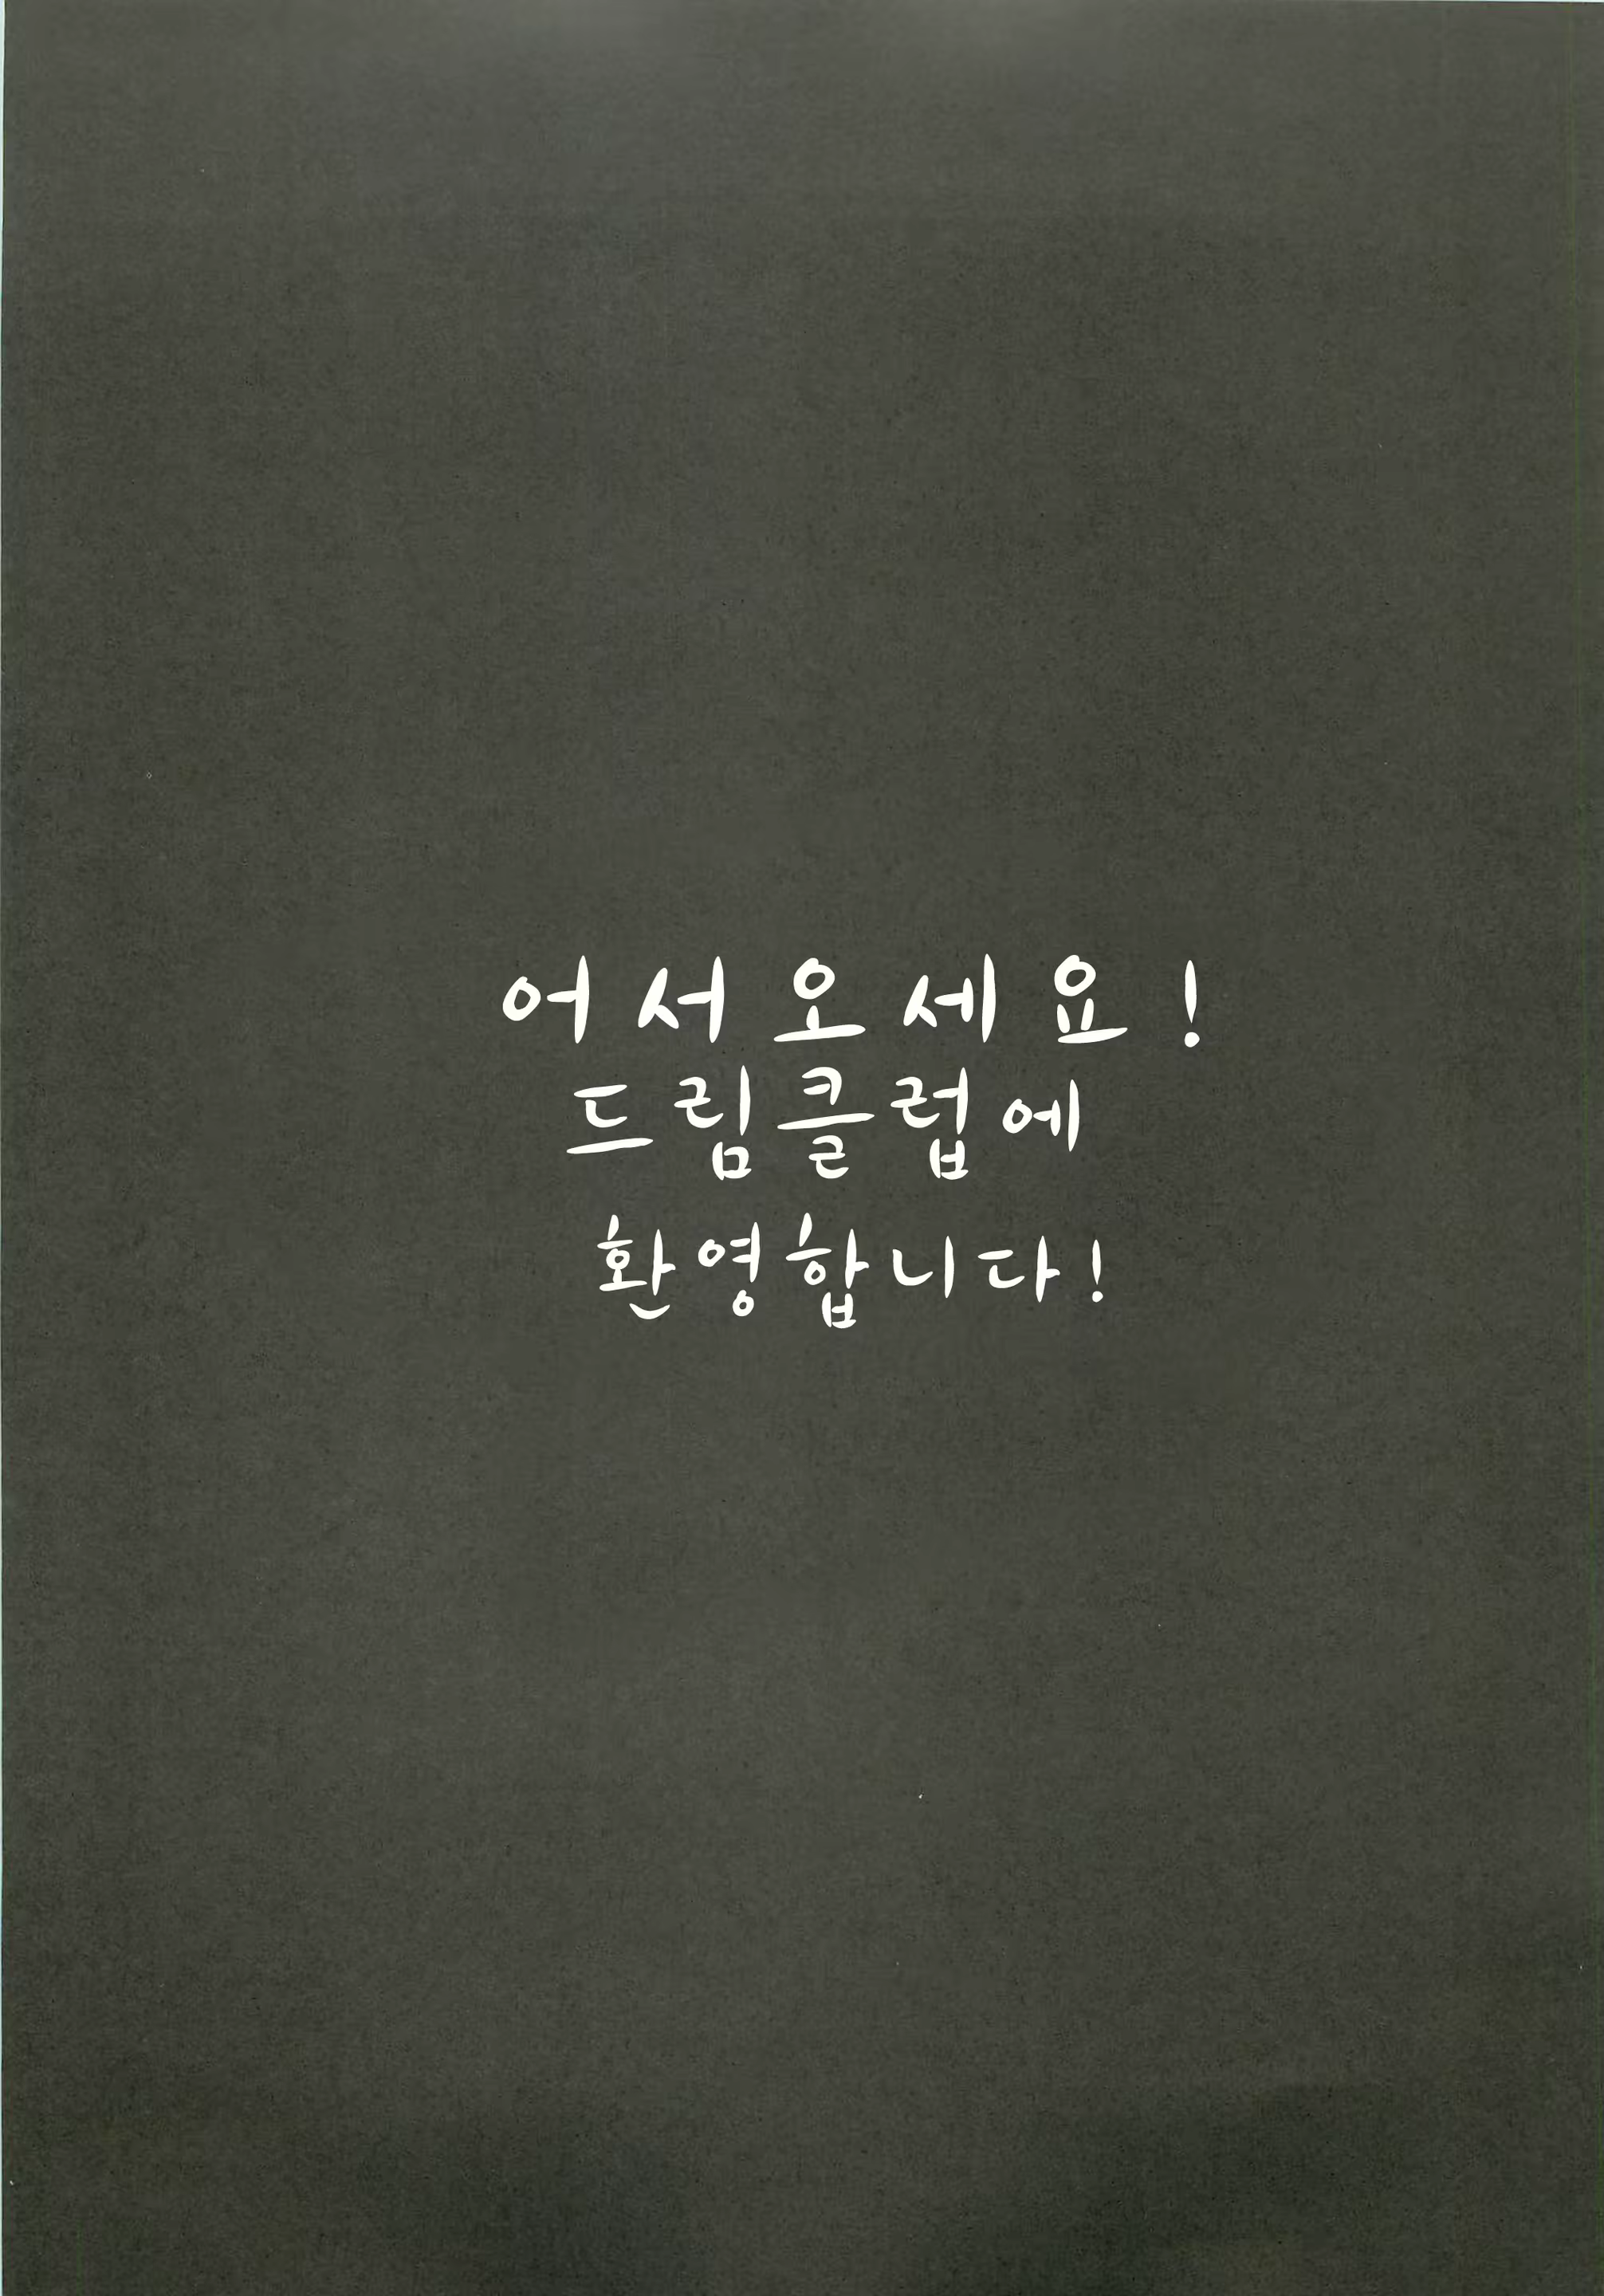 어서오세요!
드림클럽에
환영합니다!